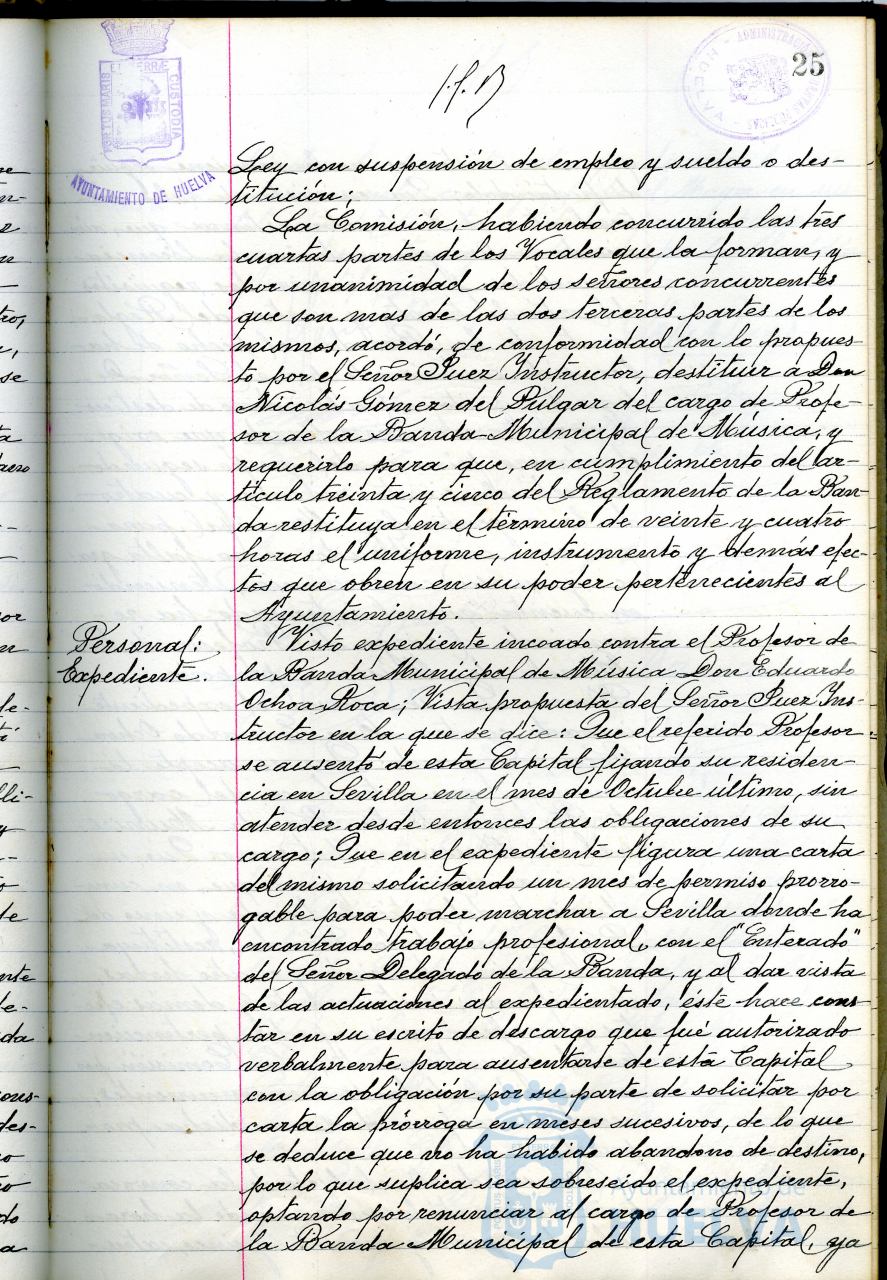 25
PORTUS MARIS ET TERRÆ CUSTODIA
AYUNTAMIENTO DE HUELVA
HUELVA
Ley con suspensión de empleo y sueldo o des-
titución;
La Comisión, habiendo concurrido las tres
cuartas partes de los Vocales que la forman, y
por unanimidad de los señores concurrentes
que son mas de las dos terceras partes de los
mismos, acordó, de conformidad con lo propues-
to por el Señor Juez Instructor, destituir a Don
Nicolás Gómez del Pulgar del cargo de Profe-
sor de la Banda Municipal de Música, y
requerirlo para que, en cumplimiento del ar-
tículo treinta y cinco del Reglamento de la Ban-
da restituya en el término de veinte y cuatro
horas el uniforme, instrumento y demás efec-
tos que obren en su poder pertenecientes al
Ayuntamiento.
Personal:
Expediente.
Visto expediente incoado contra el Profesor de
la Banda Municipal de Música Don Eduardo
Ochoa Roca; Vista propuesta del Señor Juez Ins-
tructor en la que se dice: Que el referido Profesor
se ausentó de esta Capital fijando su residen-
cia en Sevilla en el mes de Octubre último, sin
atender desde entonces las obligaciones de su
cargo; Que en el expediente figura una carta
del mismo solicitando un mes de permiso prorro-
gable para poder marchar a Sevilla donde ha
encontrado trabajo profesional, con el "Enterado"
del Señor Delegado de la Banda, y al dar vista
de las actuaciones al expedientado, éste hace cons-
tar en su escrito de descargo que fué autorizado
verbalmente para ausentarse de esta Capital
con la obligación por su parte de solicitar por
carta la prórroga en meses sucesivos, de lo que
se deduce que no ha habido abandono de destino,
por lo que suplica sea sobreseido el expediente,
optando por renunciar al cargo de Profesor de
la Banda Municipal de esta Capital, ya
Ayuntamiento de
HUELVA